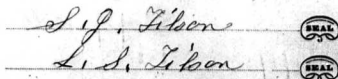 S. J. Tilson SEAL
L. S. Tilson SEAL